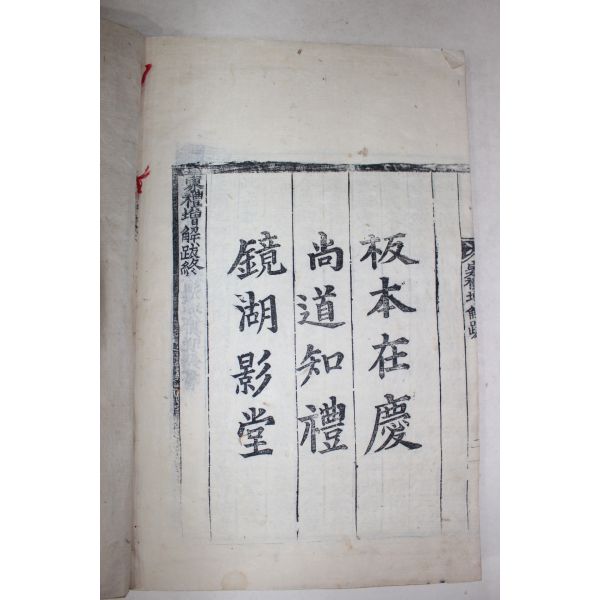 常禮增解跋
板本在慶
尚道知禮
鏡湖影堂
常禮增解跋終